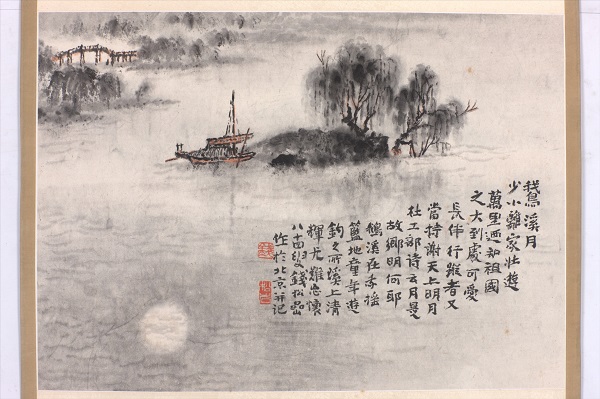 鵞溪月
少小離家壯遊
萬里迺知祖國
之大到處可愛
長伴行蹤者又
當特謝天上明月
杜工部诗云月是
故鄉明何耶
鵞溪在余搖
籃地童年遊
釣之所溪上清
輝尤難忘懷
八十四叟錢松嵒
作於北京并记